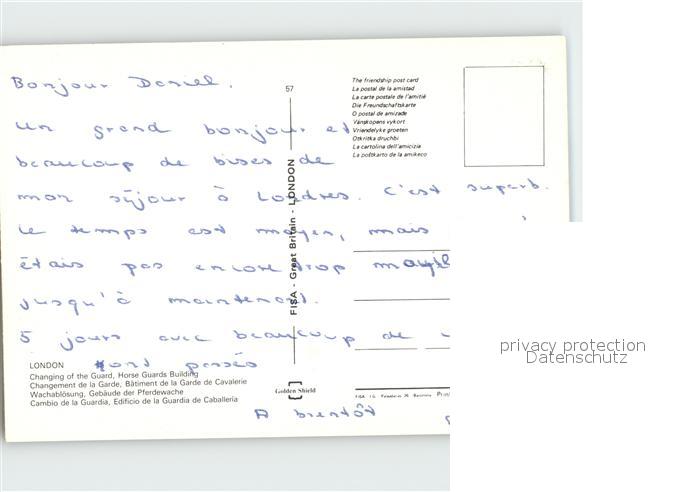 Bonjour Daniel.
un grand bonjour et
beaucoup de bises de
mon séjour à Londres. C'est superb.
le temps est moyen, mais
étais pas encore trop
jusqu'à maintenant.
5 jours avec beaucoup de
sont passés
A bientôt
57
FISA - Great Britain - LONDON
The friendship post card
La postal de la amistad
La carte postale de l'amitié
Die Freundschaftskarte
O postal de amizade
Vänskapens vykort
Vriendelyke groeten
Otkritka druchbi
La cartolina dell'amicizia
La poŝtkarto de la amikeco
LONDON
Changing of the Guard, Horse Guards Building
Changement de la Garde, Bâtiment de la Garde de Cavalerie
Wachablösung, Gebäude der Pferdewache
Cambio de la Guardia, Edificio de la Guardia de Caballería
Golden Shield
privacy protection
Datenschutz